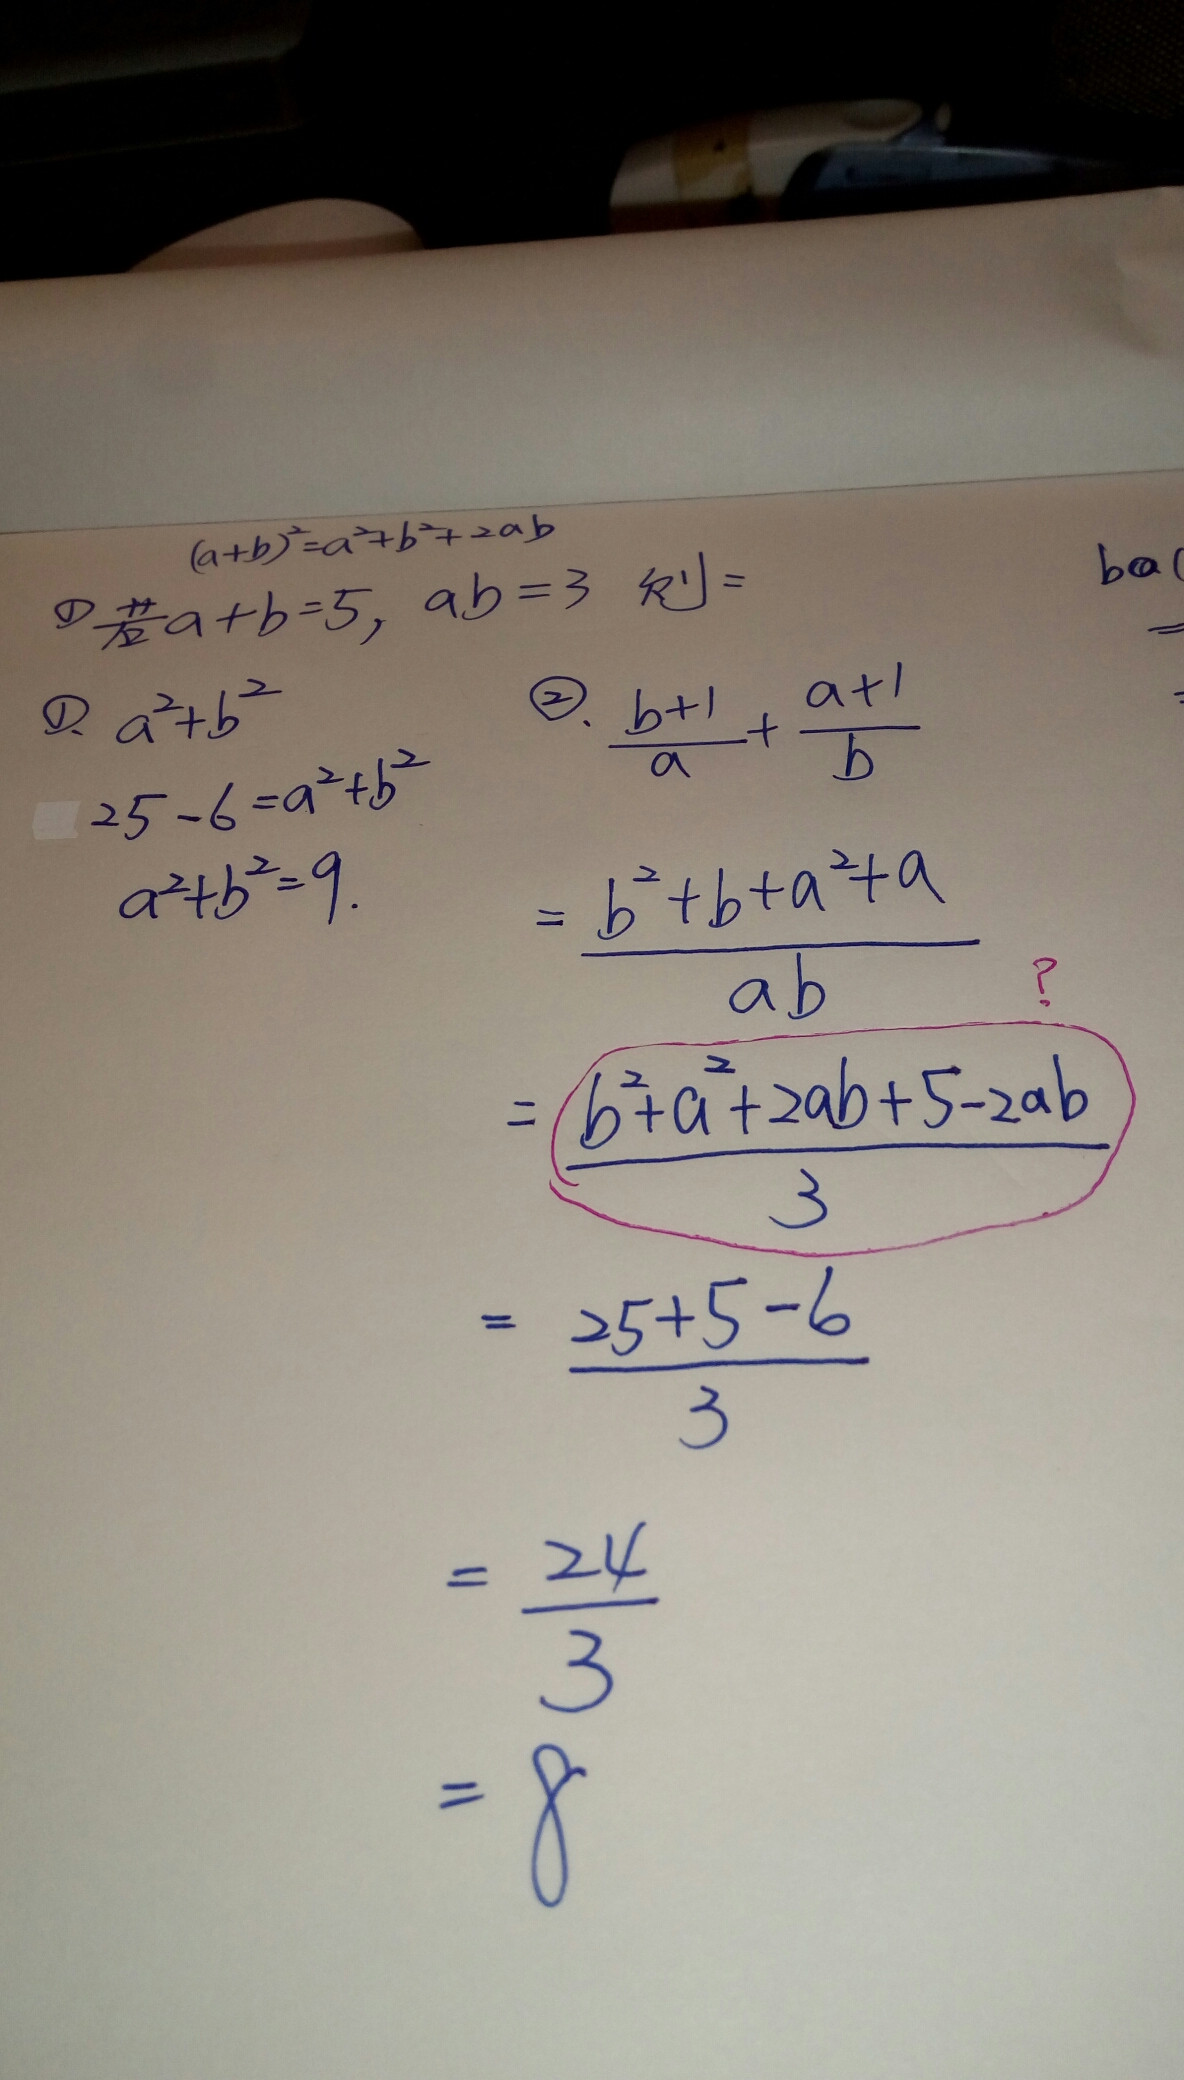 (a+b)²=a²+b²+2ab
① 若a+b=5, ab=3 则=
①. a²+b²
25-6=a²+b²
a²+b²=9.
②. (b+1)/a + (a+1)/b
= (b²+b+a²+a)/ab
?
= (b²+a²+2ab+5-2ab)/3
= (25+5-6)/3
= 24/3
= 8
ba(
=
=